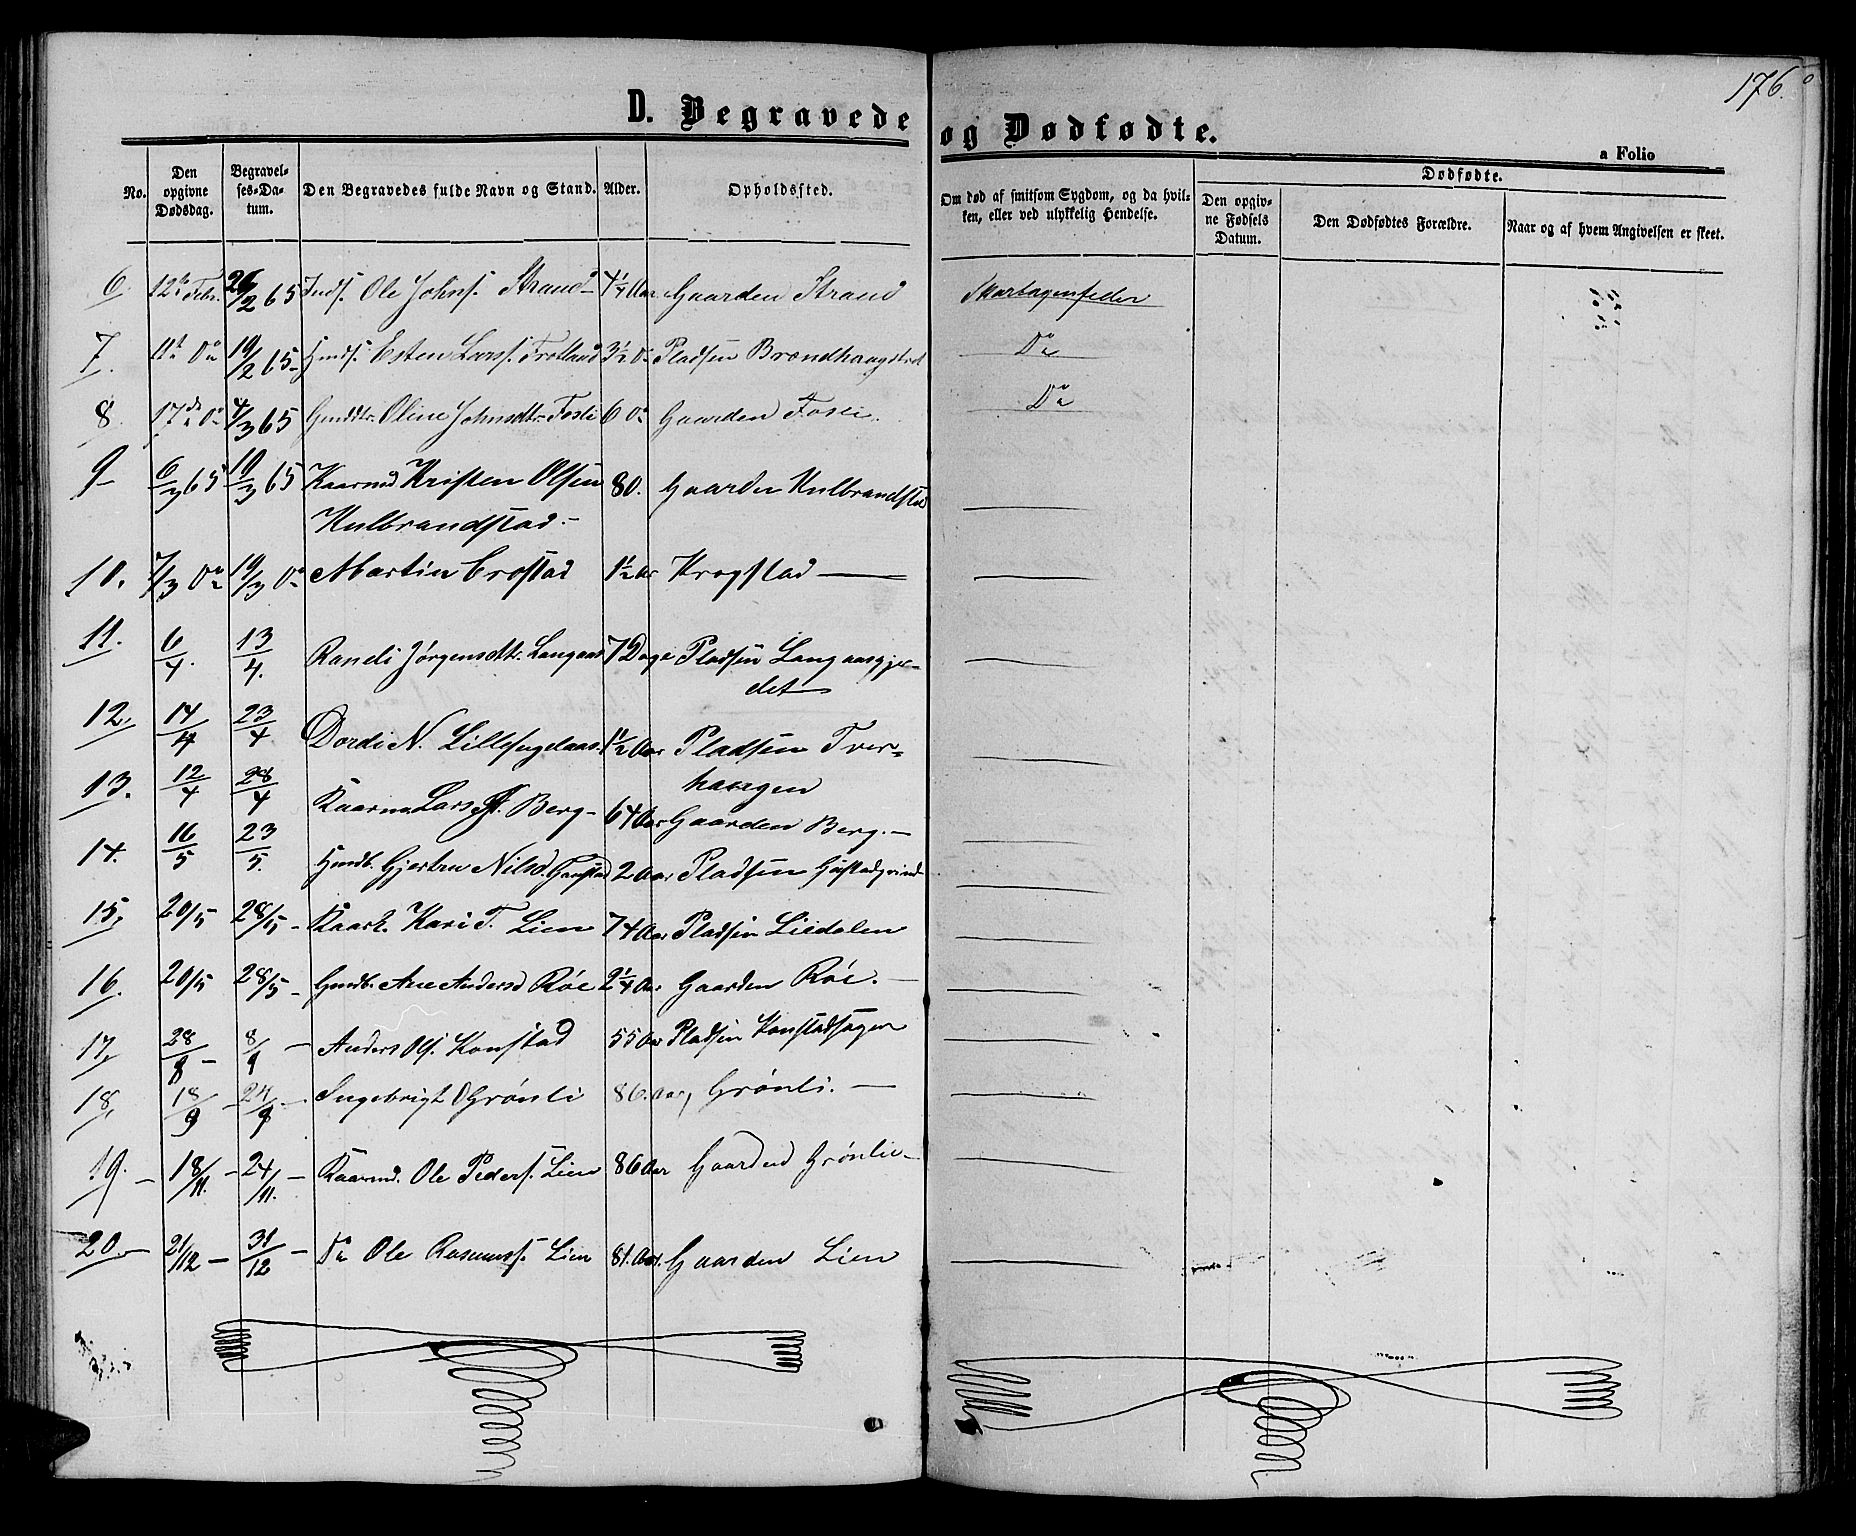 176.
D. Begravede og Dødfødte.
a Folio
No.
Den opgivne Dødsdag.
Begravelses-Datum.
Den Begravedes fulde Navn og Stand.
Alder.
Opholdssted.
Om død af smitsom Sygdom, og da hvilken, eller ved ulykkelig Hendelse.
Dødfødte.
Den opgivne Fødsels Datum.
Den Dødfødtes Forældre.
Naar og af hvem Angivelsen er skeet.
6. 12te Febr. 26/2 65 Ole Johns. Strand 4 1/4 Aar Gaarden Strand Skarlagenfeber
7. 11te Do 19/2 65 Esten Larss. 3 1/2 Do Pladsen Do
8. 17de Do 4/3 65 Oline Johnsdtr. Fosli 6 Do Gaarden Do
9 6/3 65 19/3 65 Kaarmd Kristen Olsen 80. Gaarden Kulbrandstad
Kulbrandstad.
10. 7/3 Do 19/3 Do Martin Crostad 1 1/2 Aar Krogstad
11. 6/4. 13/4. Randi Jørgensdtr. Langaas 7 Dage Pladsen Langaasgjerdet
12. 14/4 23/4 Dordi N. 1 1/2 Aar Pladsen Tverhaugen
13. 12/4 28/4 Kaarm Lars Berg 64 Aar Gaarden Berg.
14. 16/5 23/5. Gjertru Nilsd 2 Aar Pladsen
15, 20/5 28/5 Kaark. Kari T. Lien 74 Aar Pladsen Liedalen
16. 20/5 28/5 Ane Andersd Røe 2 1/4 Aar Gaarden Røe.
17, 28/8 8/9 Anders Ols. Konstad 55 Aar Pladsen Konstadhagen
18, 18/9 24/9 Ingebrigt O Grønli 86. Aar, Grønli.
19. 18/11. 24/11. Kaarmd. Ole Peders. Lien 86 Aar Gaarden Grønlie
20 21/12 31/12 Do Ole Rasmuss. Lien 81. Aar. Gaarden Lien